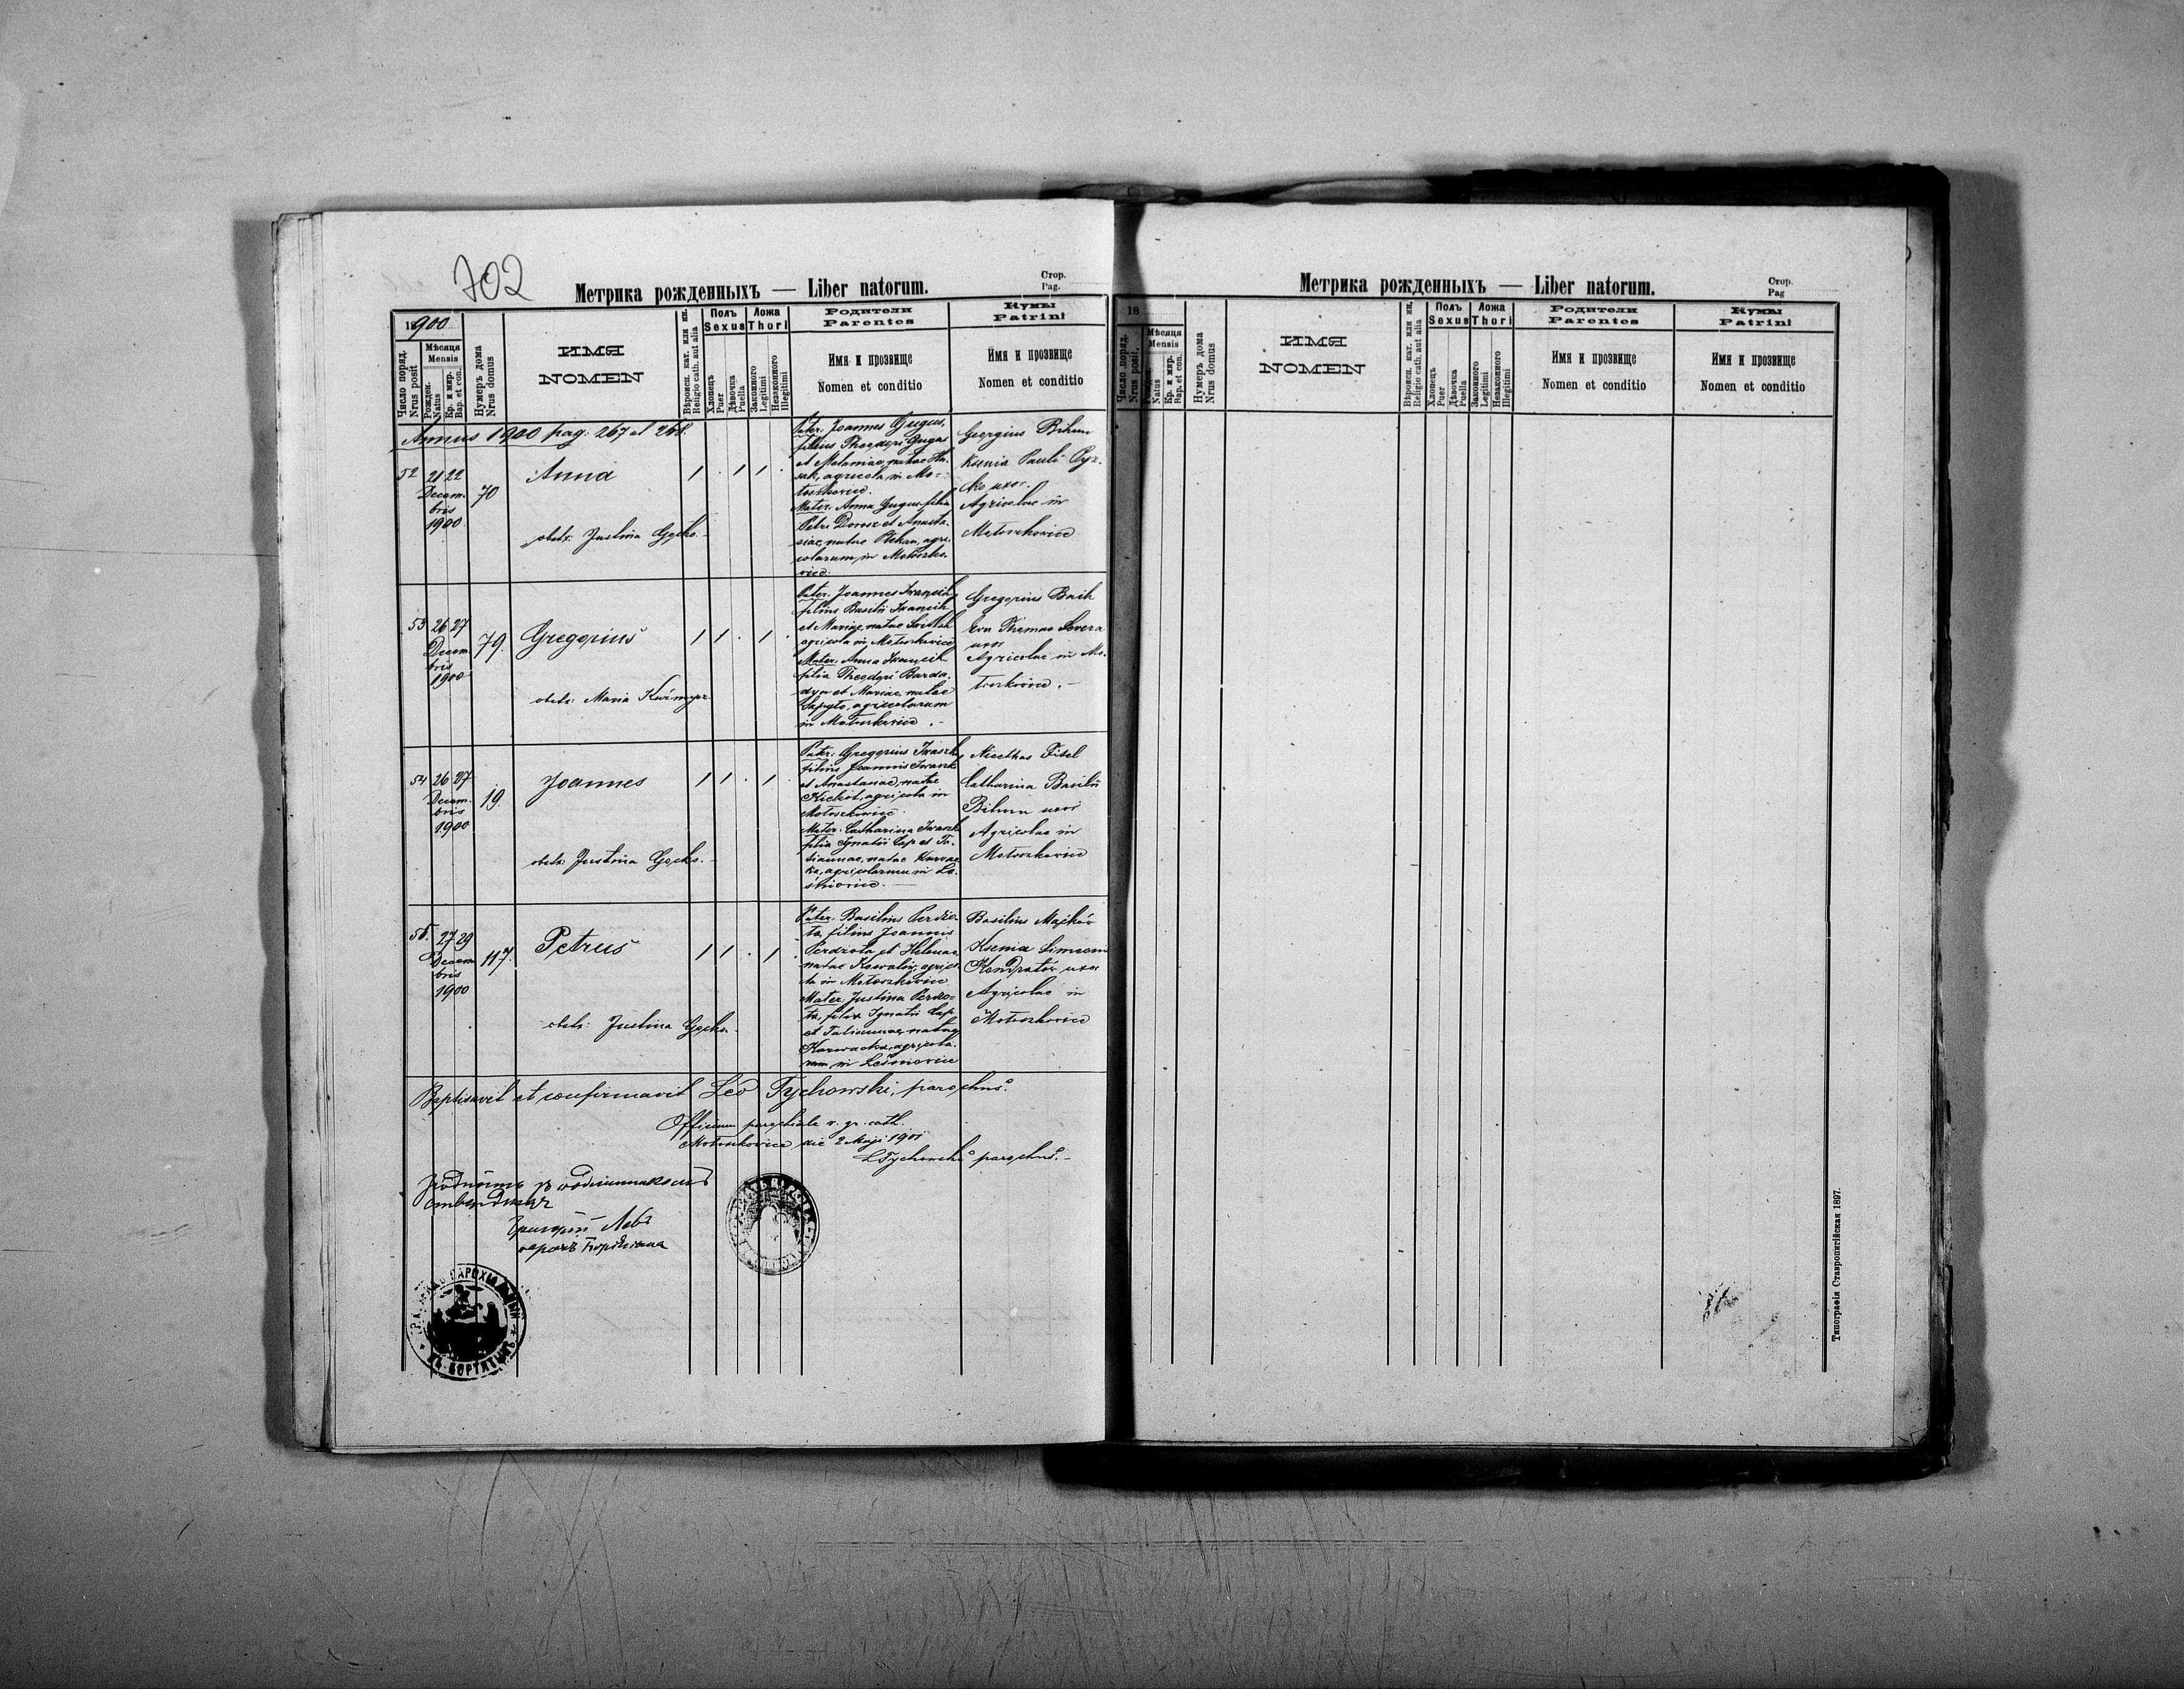 702
Метрика рожденныхъ — Liber natorum.
Стор.
Pag.
1900
Число поряд.
Nrus posit
Мѣсяця
Mensis
Рожден.
Natus
Кр. и мир.
Bap. et con.
Нумеръ дома
Nrus domus
ИМЯ
NOMEN
Вѣроисп. кат. или ин.
Religio cath. aut alia
Полъ
Sexus
Хлопецъ
Puer
Дѣвочка
Puella
Ложа
Thori
Законного
Legitimi
Незаконного
Illegitimi
Родители
Parentes
Имя и прозвище
Nomen et conditio
Кумы
Patrini
Имя и прозвище
Nomen et conditio
Annus 1900 pag: 267 et 268.
52
21 22
Decem-
bris
1900
70
Anna
obstx: Justina Gęcko.
Pater: Joannes Gugus,
filius Theodori Gugus
et Melaniae, natae
agricola in Mo-
toszkowice.
Mater: Anna Gugus, filia
Petri Dorosz et Anasta-
siae, natae agri-
colarum in Motoszko-
wice.
Georgius Bihun
Ksenia Pauli
uxor.
Agricolae in
Motoszkowice
53
26 27
Decem-
bris
1900
79.
Gregorius
obstx: Maria
Pater: Joannes
filius Basilii
et Mariae, natae
agricola in Motoszkowice
Mater: Anna
filia Theodori Barda-
dyn et Mariae, natae
agricolarum
in Motoszkowice.
Gregorius
Eva Thomae
uxor
Agricolae in Mo-
toszkowice.
54
26 27
Decem-
bris
1900
19.
Joannes
obstx: Justina Gęcko.
Pater: Gregorius
filius Joannis
et Anastasiae, natae
agricola in
Motoszkowice.
Mater: Catharina
filia Ignatii Łap et Ta-
tiannae, natae Karwac-
ka, agricolarum in Le-
śniowice.
Nicethas Fisel
Catharina Basilii
Bihun uxor
Agricolae in
Motoszkowice
55.
27 29
Decem-
bris
1900
117.
Petrus
obstx: Justina Gęcko.
Pater: Basilius Perdzo-
ta, filius Joannis
Perdzota et Helenae,
natae Kowaliw, agrico-
la in Motoszkowice
Mater: Justina Perdzo-
ta, filia Ignatii Łap
et Tatiannae, natae
Karwacka, agricola-
rum in Leśniowice
Basilius
Ksenia Simeonis
Kondratów uxor
Agricolae in
Motoszkowice
Baptisavit et confirmavit Leo Tychowski, parochus.
Officium parochiale r. gr. cath.
Motoszkowice die 2 Maji 1901
LTychowski parochus.
18
Метрика рожденныхъ — Liber natorum.
Стор.
Pag
Число поряд.
Nrus posit.
Мѣсяця
Mensis
Рожден.
Natus
Кр. и мир.
Bap. et con.
Нумеръ дома
Nrus domus
ИМЯ
NOMEN
Вѣроисп. кат. или ин.
Religio cath. aut alia
Полъ
Sexus
Хлопецъ
Puer
Дѣвочка
Puella
Ложа
Thori
Законного
Legitimi
Незаконного
Illegitimi
Родители
Parentes
Имя и прозвище
Nomen et conditio
Кумы
Patrini
Имя и прозвище
Nomen et conditio
Типографія Ставропигійская 1897.